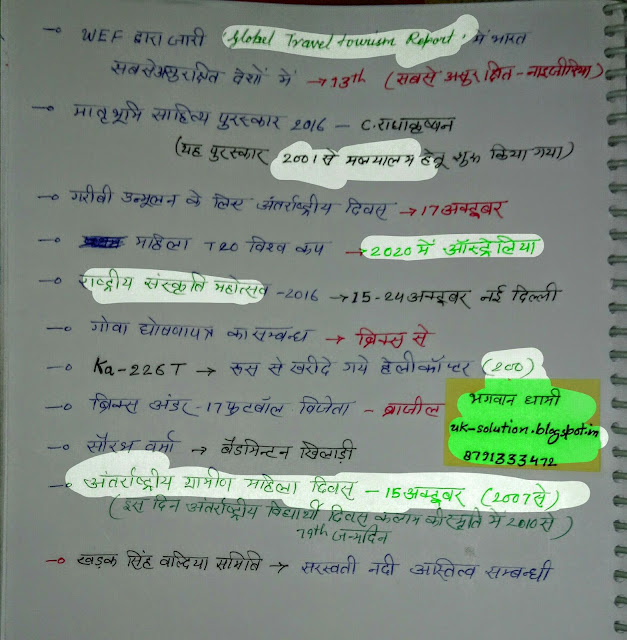 WEF द्वारा जारी 'Global Travel tourism Report' में भारत
सबसे असुरक्षित देशों में → 13th (सबसे असुरक्षित - नाइजीरिया)
मातृभूमि साहित्य पुरस्कार 2016 - C. राधाकृष्णन
(यह पुरस्कार 2001 से मलयालम हेतू शुरू किया गया)
गरीबी उन्मूलन के लिए अंतर्राष्ट्रीय दिवस → 17 अक्टूबर
महिला T20 विश्व कप → 2020 में ऑस्ट्रेलिया
राष्ट्रीय संस्कृति महोत्सव - 2016 → 15-24 अक्टूबर नई दिल्ली
गोवा घोषणापत्र का सम्बन्ध → ब्रिक्स से
Ka-226T → रूस से खरीदे गये हेलीकॉप्टर (200)
ब्रिक्स अंडर-17 फुटबॉल विजेता - ब्राजील
भगवान धामी
uk-solution.blogspot.in
8791333472
सौरभ वर्मा → बैडमिन्टन खिलाड़ी
अंतर्राष्ट्रीय ग्रामीण महिला दिवस - 15 अक्टूबर (2007 से)
(इस दिन अंतर्राष्ट्रीय विद्यार्थी दिवस कलाम की स्मृति में 2010 से)
79th जन्मदिन
खड़क सिंह वाल्दिया समिति → सरस्वती नदी अस्तित्व सम्बन्धी